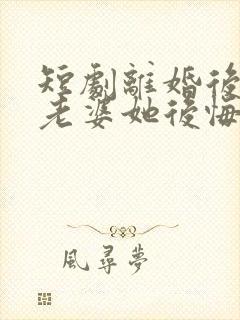 短劇離婚後
老婆她後悔
風尋夢